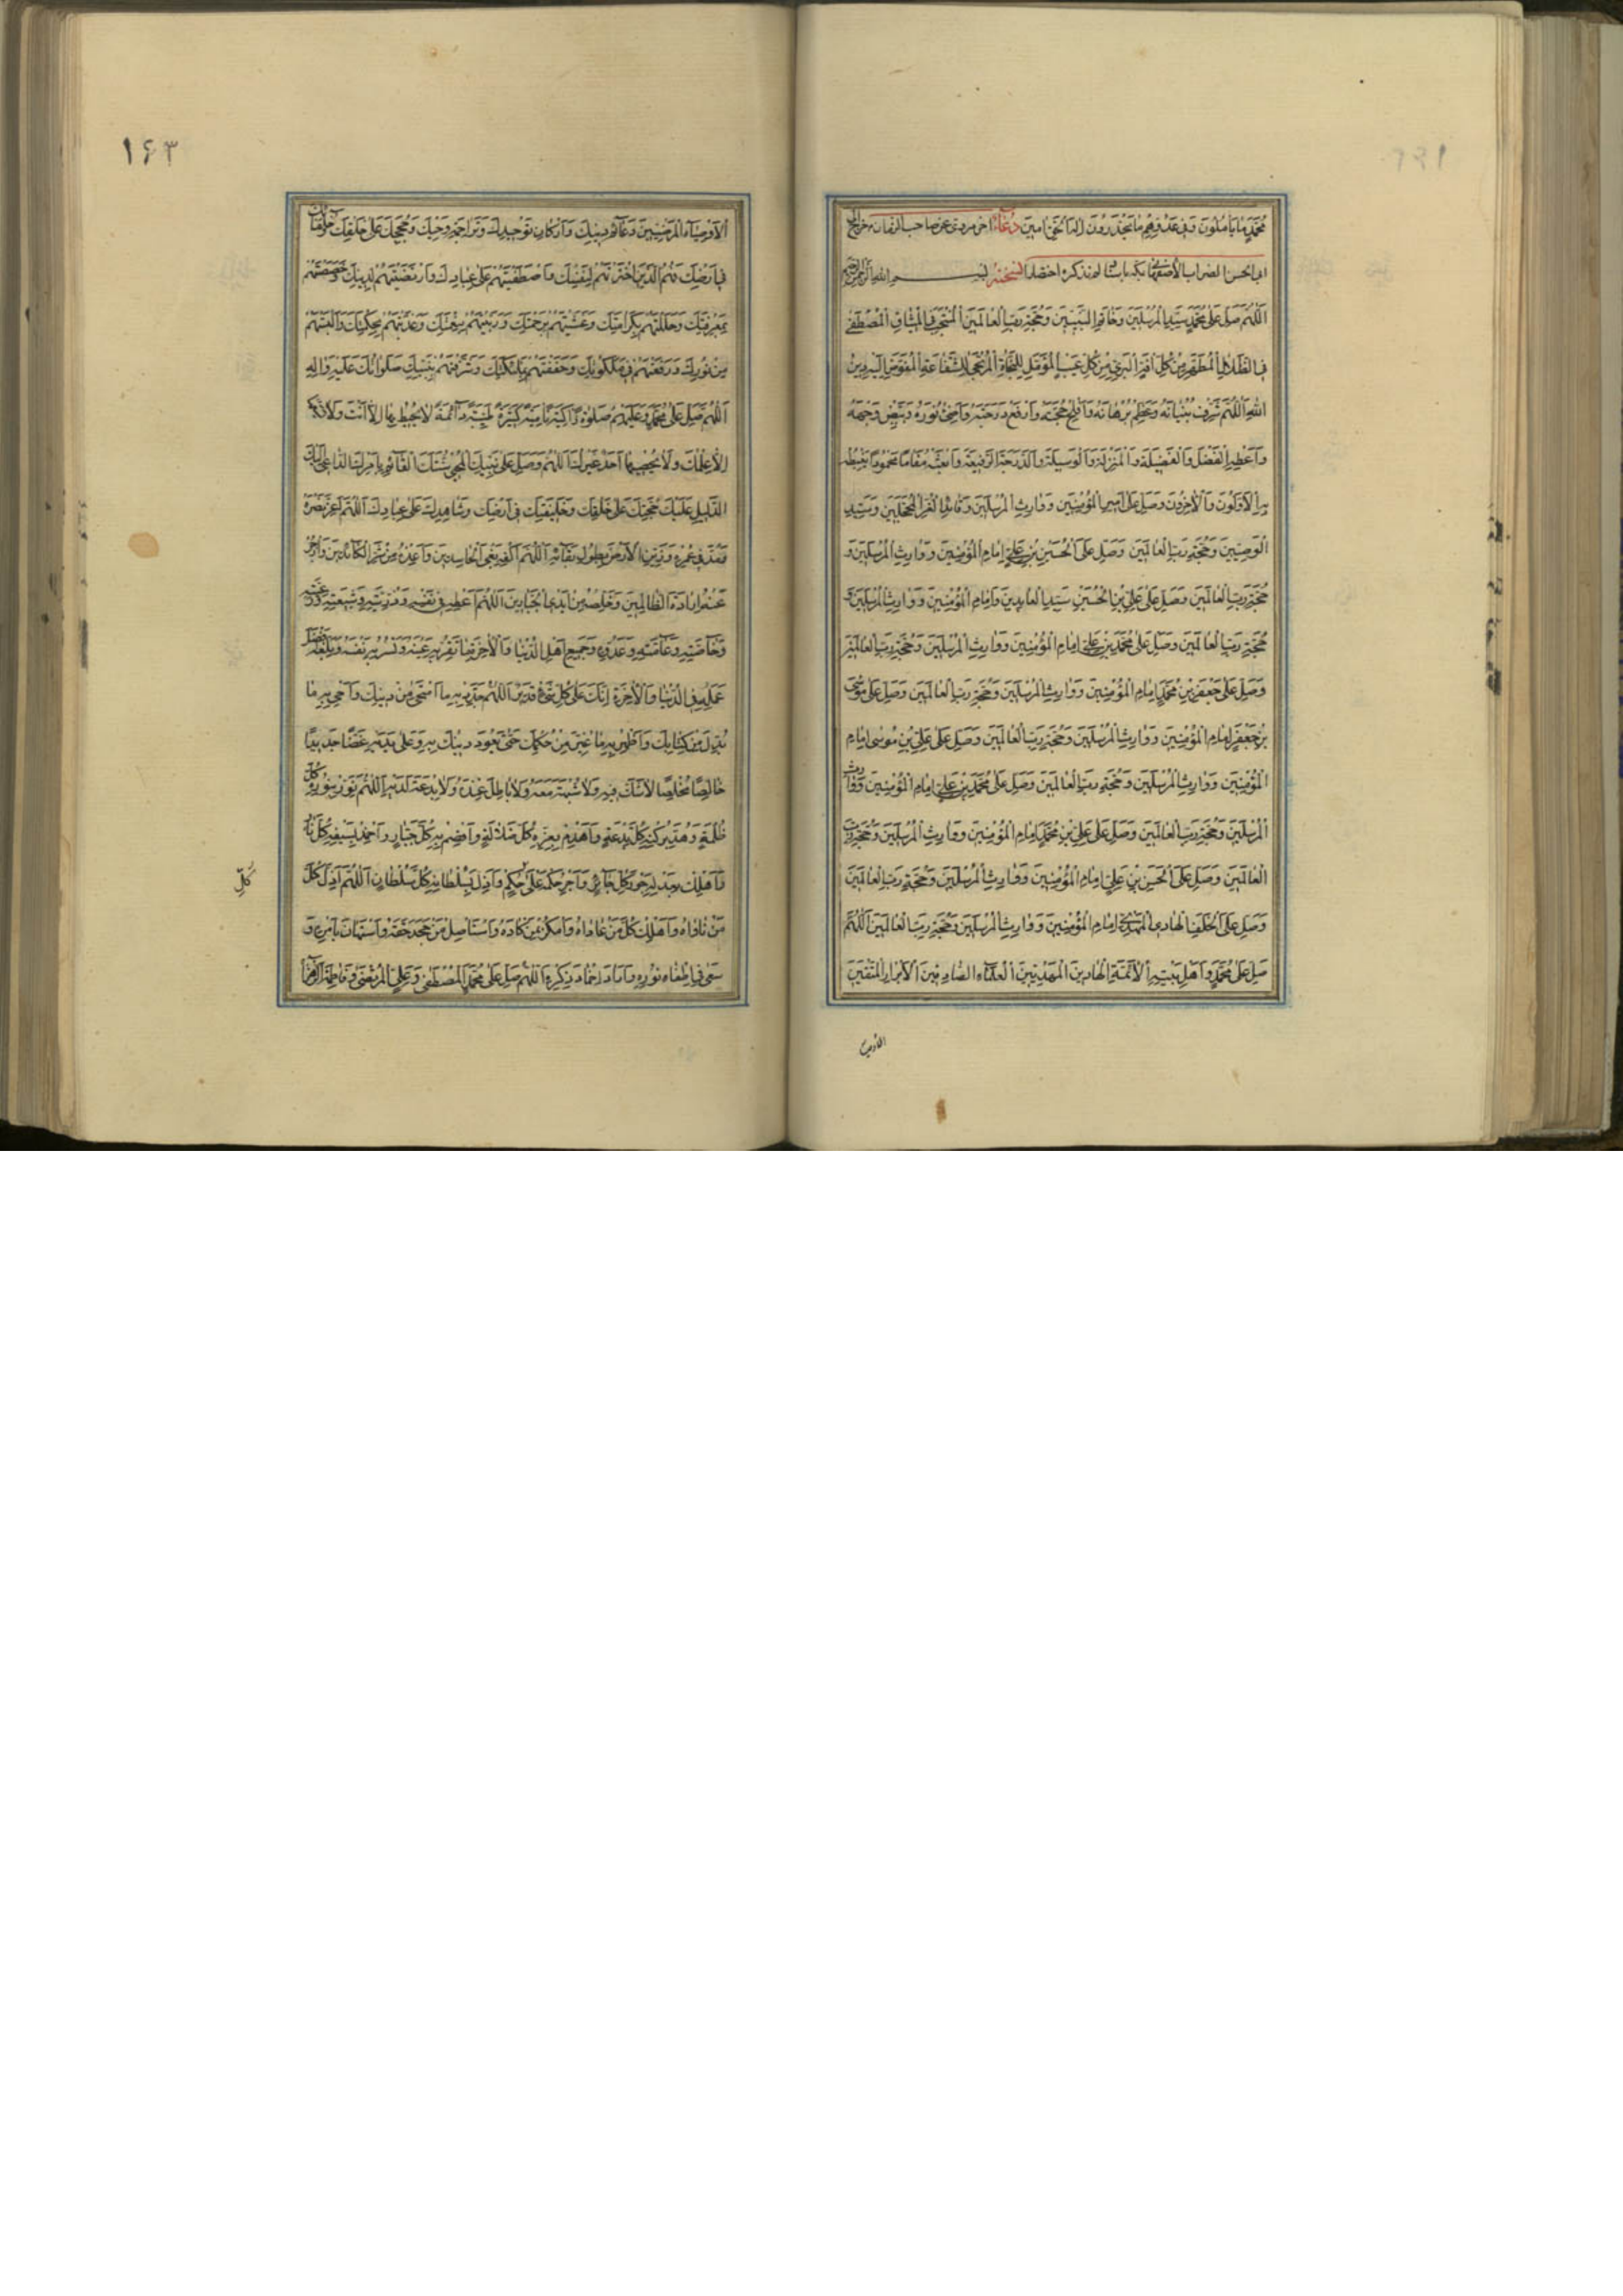 مُحَمَّدٍ مَا يَأْمُلُونَ وَفِي عَدُوِّهِمْ مَا يَحْذَرُونَ إِلٰهَ الْحَقِّ اٰمِينَ دُعَاءٌ اخر مروى عن صاحب الزمان خرج الى
ابى الحسن الضراب الأصفهانى بمكة باسناد لم نذكره اختصارا نسخته بسم الله الرحمن الرحيم
اَللّٰهُمَّ صَلِّ عَلٰى مُحَمَّدٍ سَيِّدِ الْمُرْسَلِينَ وَخَاتَمِ النَّبِيِّينَ وَحُجَّةِ رَبِّ الْعَالَمِينَ الْمُنْتَجَبِ فِي الْمِيثَاقِ الْمُصْطَفٰى
فِي الظِّلَالِ الْمُطَهَّرِ مِنْ كُلِّ اٰفَةٍ الْبَرِيءِ مِنْ كُلِّ عَيْبٍ الْمُؤَمَّلِ لِلنَّجَاةِ الْمُرْتَجٰى لِلشَّفَاعَةِ الْمُفَوَّضِ إِلَيْهِ دِينُ
اللّٰهِ اَللّٰهُمَّ شَرِّفْ بُنْيَانَهُ وَعَظِّمْ بُرْهَانَهُ وَأَفْلِجْ حُجَّتَهُ وَارْفَعْ دَرَجَتَهُ وَأَضِئْ نُورَهُ وَبَيِّضْ وَجْهَهُ
وَأَعْطِهِ الْفَضْلَ وَالْفَضِيلَةَ وَالْمَنْزِلَةَ وَالْوَسِيلَةَ وَالدَّرَجَةَ الرَّفِيعَةَ وَابْعَثْهُ مَقَامًا مَحْمُودًا يَغْبِطُهُ
بِهِ الْأَوَّلُونَ وَالْاٰخِرُونَ وَصَلِّ عَلٰى أَمِيرِ الْمُؤْمِنِينَ وَوَارِثِ الْمُرْسَلِينَ وَقَائِدِ الْغُرِّ الْمُحَجَّلِينَ وَسَيِّدِ
الْوَصِيِّينَ وَحُجَّةِ رَبِّ الْعَالَمِينَ وَصَلِّ عَلَى الْحُسَيْنِ بْنِ عَلِيٍّ إِمَامِ الْمُؤْمِنِينَ وَوَارِثِ الْمُرْسَلِينَ وَ
حُجَّةِ رَبِّ الْعَالَمِينَ وَصَلِّ عَلٰى عَلِيِّ بْنِ الْحُسَيْنِ سَيِّدِ الْعَابِدِينَ وَإِمَامِ الْمُؤْمِنِينَ وَوَارِثِ الْمُرْسَلِينَ وَ
حُجَّةِ رَبِّ الْعَالَمِينَ وَصَلِّ عَلٰى مُحَمَّدِ بْنِ عَلِيٍّ إِمَامِ الْمُؤْمِنِينَ وَوَارِثِ الْمُرْسَلِينَ وَحُجَّةِ رَبِّ الْعَالَمِينَ
وَصَلِّ عَلٰى جَعْفَرِ بْنِ مُحَمَّدٍ إِمَامِ الْمُؤْمِنِينَ وَوَارِثِ الْمُرْسَلِينَ وَحُجَّةِ رَبِّ الْعَالَمِينَ وَصَلِّ عَلٰى مُوسَى
بْنِ جَعْفَرٍ إِمَامِ الْمُؤْمِنِينَ وَوَارِثِ الْمُرْسَلِينَ وَحُجَّةِ رَبِّ الْعَالَمِينَ وَصَلِّ عَلٰى عَلِيِّ بْنِ مُوسٰى إِمَامِ
الْمُؤْمِنِينَ وَوَارِثِ الْمُرْسَلِينَ وَحُجَّةِ رَبِّ الْعَالَمِينَ وَصَلِّ عَلٰى مُحَمَّدِ بْنِ عَلِيٍّ إِمَامِ الْمُؤْمِنِينَ وَوَارِثِ
الْمُرْسَلِينَ وَحُجَّةِ رَبِّ الْعَالَمِينَ وَصَلِّ عَلٰى عَلِيِّ بْنِ مُحَمَّدٍ إِمَامِ الْمُؤْمِنِينَ وَوَارِثِ الْمُرْسَلِينَ وَحُجَّةِ رَبِّ
الْعَالَمِينَ وَصَلِّ عَلَى الْحَسَنِ بْنِ عَلِيٍّ إِمَامِ الْمُؤْمِنِينَ وَوَارِثِ الْمُرْسَلِينَ وَحُجَّةِ رَبِّ الْعَالَمِينَ
وَصَلِّ عَلَى الْخَلَفِ الْهَادِي الْمَهْدِيِّ إِمَامِ الْمُؤْمِنِينَ وَوَارِثِ الْمُرْسَلِينَ وَحُجَّةِ رَبِّ الْعَالَمِينَ اَللّٰهُمَّ
صَلِّ عَلٰى مُحَمَّدٍ وَأَهْلِ بَيْتِهِ الْأَئِمَّةِ الْهَادِينَ الْمَهْدِيِّينَ الْعُلَمَاءِ الصَّادِقِينَ الْأَبْرَارِ الْمُتَّقِينَ
الأوصياء
١۶٣
الْأَوْصِيَاءِ الْمَرْضِيِّينَ دَعَائِمِ دِينِكَ وَأَرْكَانِ تَوْحِيدِكَ وَتَرَاجِمَةِ وَحْيِكَ وَحُجَجِكَ عَلٰى خَلْقِكَ وَخُلَفَائِكَ
فِي أَرْضِكَ فَهُمُ الَّذِينَ اخْتَرْتَهُمْ لِنَفْسِكَ وَاصْطَفَيْتَهُمْ عَلٰى عِبَادِكَ وَارْتَضَيْتَهُمْ لِدِينِكَ وَخَصَصْتَهُمْ
بِمَعْرِفَتِكَ وَجَلَّلْتَهُمْ بِكَرَامَتِكَ وَغَشَّيْتَهُمْ بِرَحْمَتِكَ وَرَبَّيْتَهُمْ بِنِعْمَتِكَ وَغَذَّيْتَهُمْ بِحِكْمَتِكَ وَأَلْبَسْتَهُمْ
مِنْ نُورِكَ وَرَفَعْتَهُمْ فِي مَلَكُوتِكَ وَحَفَفْتَهُمْ بِمَلَائِكَتِكَ وَشَرَّفْتَهُمْ بِنَبِيِّكَ صَلَوَاتُكَ عَلَيْهِ وَاٰلِهِ
اَللّٰهُمَّ صَلِّ عَلٰى مُحَمَّدٍ وَعَلَيْهِمْ صَلٰوةً زَاكِيَةً نَامِيَةً كَثِيرَةً طَيِّبَةً دَائِمَةً لَا يُحِيطُ بِهَا إِلَّا أَنْتَ وَلَا يَسَعُهَا
إِلَّا عِلْمُكَ وَلَا يُحْصِيهَا أَحَدٌ غَيْرُكَ اَللّٰهُمَّ وَصَلِّ عَلٰى نَبِيِّكَ الْمُحْيِي سُنَّتَكَ الْقَائِمِ بِأَمْرِكَ الدَّاعِي إِلَيْكَ
الدَّلِيلِ عَلَيْكَ حُجَّتِكَ عَلٰى خَلْقِكَ وَخَلِيفَتِكَ فِي أَرْضِكَ وَشَاهِدِكَ عَلٰى عِبَادِكَ اَللّٰهُمَّ أَعِزَّ نَصْرَهُ
وَمُدَّ فِي عُمْرِهِ وَزَيِّنِ الْأَرْضَ بِطُولِ بَقَائِهِ اَللّٰهُمَّ اكْفِهِ بَغْيَ الْحَاسِدِينَ وَأَعِذْهُ مِنْ شَرِّ الْكَائِدِينَ وَازْجُرْ
عَنْهُ إِرَادَةَ الظَّالِمِينَ وَخَلِّصْهُ مِنْ أَيْدِي الْجَبَّارِينَ اَللّٰهُمَّ أَعْطِهِ فِي نَفْسِهِ وَذُرِّيَّتِهِ وَشِيعَتِهِ وَرَعِيَّتِهِ
وَخَاصَّتِهِ وَعَامَّتِهِ وَعَدُوِّهِ وَجَمِيعِ أَهْلِ الدُّنْيَا وَالْاٰخِرَةِ مَا تُقِرُّ بِهِ عَيْنَهُ وَتَسُرُّ بِهِ نَفْسَهُ وَبَلِّغْهُ أَفْضَلَ
عَمَلِهِ فِي الدُّنْيَا وَالْاٰخِرَةِ إِنَّكَ عَلٰى كُلِّ شَيْءٍ قَدِيرٌ اَللّٰهُمَّ جَدِّدْ بِهِ مَا امْتَحٰى مِنْ دِينِكَ وَأَحْيِ بِهِ مَا
بُدِّلَ مِنْ كِتَابِكَ وَأَظْهِرْ بِهِ مَا غُيِّرَ مِنْ حُكْمِكَ حَتّٰى يَعُودَ دِينُكَ بِهِ وَعَلٰى يَدَيْهِ غَضًّا جَدِيدًا
خَالِصًا مُخْلَصًا لَا شَكَّ فِيهِ وَلَا شُبْهَةَ مَعَهُ وَلَا بَاطِلَ عِنْدَهُ وَلَا بِدْعَةَ لَدَيْهِ اَللّٰهُمَّ نَوِّرْ بِنُورِهِ كُلَّ
ظُلْمَةٍ وَهُدَّ بِرُكْنِهِ كُلَّ بِدْعَةٍ وَاهْدِمْ بِعِزِّهِ كُلَّ ضَلَالَةٍ وَاقْصِمْ بِهِ كُلَّ جَبَّارٍ وَأَخْمِدْ بِسَيْفِهِ كُلَّ نَارٍ
وَأَهْلِكْ بِعَدْلِهِ جَوْرَ كُلِّ جَائِرٍ وَأَجْرِ حُكْمَهُ عَلٰى حُكْمٍ وَأَذِلَّ بِسُلْطَانِهِ كُلَّ سُلْطَانٍ اَللّٰهُمَّ أَذِلَّ كُلَّ
كُلِّ
مَنْ نَاوَاهُ وَأَهْلِكْ كُلَّ مَنْ عَادَاهُ وَامْكُرْ بِمَنْ كَادَهُ وَاسْتَأْصِلْ مَنْ جَحَدَ حَقَّهُ وَاسْتَهَانَ بِأَمْرِهِ وَ
سَعٰى فِي إِطْفَاءِ نُورِهِ وَأَرَادَ إِخْمَادَ ذِكْرِهِ اَللّٰهُمَّ صَلِّ عَلٰى مُحَمَّدٍ الْمُصْطَفٰى وَعَلِيٍّ الْمُرْتَضٰى وَفَاطِمَةَ الزَّهْرَاءِ